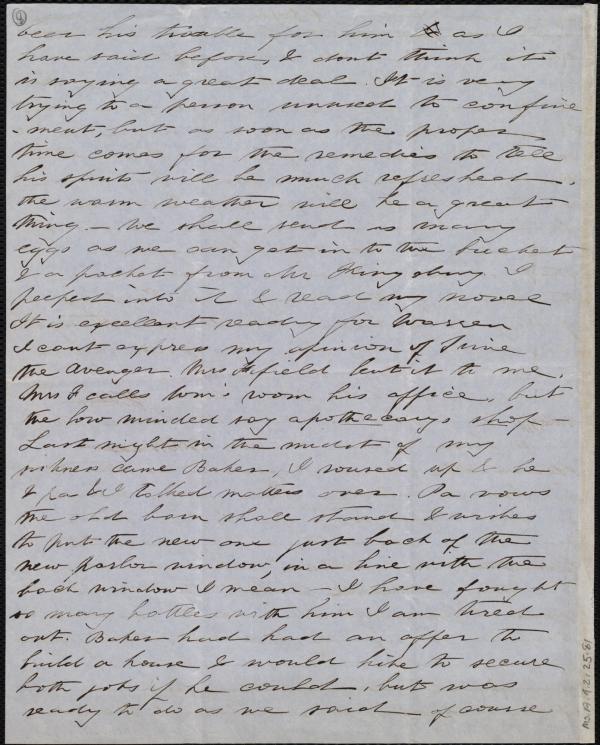 9
bear his trouble for him as I
have said before, & dont think it
is saying a great deal. It is very
trying to a person unused to confine
-ment, but as soon as the proper
time comes for the remedies to tell
his spirits will be much refreshed.
the warm weather will be a great
thing. — We shall send as many
eggs as we can get in to the bucket
& a packet from Mr Kingsbury. I
peeped into it & read my novel
It is excellent reading for Warren
I cant express my opinion of
the Avenger. Mrs Fifield lent it to me.
Mrs F calls Tom's room his office, but
the low minded say apothecarys shop —
Last night in the midst of my
sickness came Baker, I roused up & he
& pa & I talked matters over. Pa vows
the old barn shall stand & wishes
to put the new one just back of the
new parlor window, in a line with the
back window I mean — I have fought
so many battles with him I am tired
out. Baker had had an offer to
build a house & would like to secure
both jobs if he could, but was
ready to do as we said of course
Ms.A.9.2.25.81